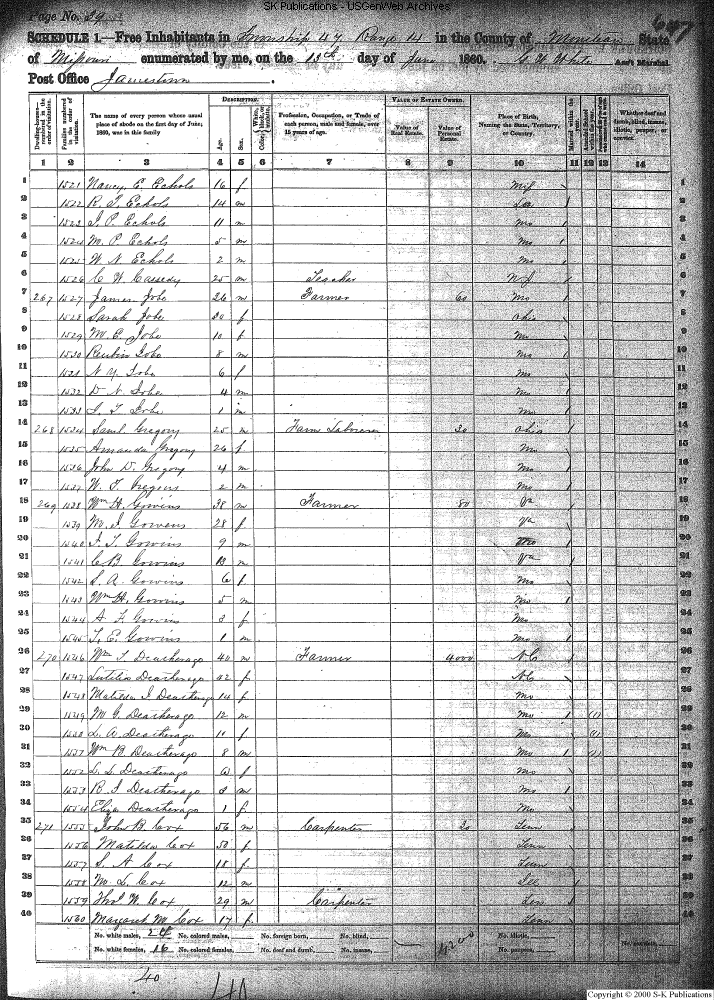 SK Publications - USGenWeb Archives
Page No. 39
647
SCHEDULE 1.—Free Inhabitants in Township 47 Range 14 in the County of Moniteau State
of Missouri enumerated by me, on the 13th day of June 1860. C. H. White Ass't Marshal.
Post Office Jamestown
Dwelling-houses—numbered in the order of visitation. Families numbered in the order of visitation. The name of every person whose usual place of abode on the first day of June, 1860, was in this family DESCRIPTION. Age. Sex. Color, White, black, or mulatto. Profession, Occupation, or Trade of each person, male and female, over 15 years of age. VALUE OF ESTATE OWNED. Value of Real Estate. Value of Personal Estate. Place of Birth, Naming the State, Territory, or Country. Married within the year. Whether deaf and dumb, blind, insane, idiotic, pauper, or convict.
1 2 3 4 5 6 7 8 9 10 11 12 13 14
1 1521 Nancy E. Echols 16 f 1
2 1522 R. T. Echols 14 m 2
3 1523 J. P. Echols 11 m Mo 3
4 1524 M. P. Echols 5 m Mo 4
5 1525 W. N. Echols 2 m Mo 5
6 1526 C. W. Cassedy 25 m Teacher N.J. 6
7 267 1527 James Jobe 26 m Farmer 60 Mo 7
8 1528 Sarah Jobe 30 f Ohio 8
9 1529 M. E. Jobe 10 f Mo 9
10 1530 Reubin Jobe 8 m Mo 10
11 1531 N. Y. Jobe 6 f Mo 11
12 1532 D. N. Jobe 4 m Mo 12
13 1533 J. T. Jobe 1 m Mo 13
14 268 1534 Saml Gregory 25 m Farm Laborer 30 Ohio 14
15 1535 Amanda Gregory 26 f Mo 15
16 1536 John D. Gregory 4 m Mo 16
17 1537 W. T. Gregory 2 m Mo 17
18 269 1538 Wm H. Gowins 38 m Farmer 80 Va 18
19 1539 M. J. Gowens 28 f Va 19
20 1540 F. T. Gowins 9 m 20
21 1541 C. B. Gowins m Va 21
22 1542 S. A. Gowins 6 f Mo 22
23 1543 Wm H. Gowins 5 m Mo 23
24 1544 A. F. Gowins 3 f Mo 24
25 1545 T. E. Gowins 1 m Mo 25
26 270 1546 Wm T. Deatherago 40 m Farmer 4000 N.C. 26
27 1547 Lutilia Deatherago 42 f N.C. 27
28 1548 Matilda J Deatherago 14 f Mo 28
29 1549 M. G. Deatherago 12 m Mo (1) 29
30 1550 L. A. Deatherago 11 f Mo (1) 30
31 1551 Wm B. Deatherago 8 m Mo (1) 31
32 1552 L. L. Deatherago 6 f Mo 32
33 1553 R. J. Deatherago 3 m Mo 33
34 1554 Eliza Deatherago 1 f Mo 34
35 271 1555 John B. Cox 56 m Carpenter 20 Tenn 35
36 1556 Matilda Cox 50 f Tenn 36
37 1557 S. A Cox 18 f Tenn 37
38 1558 M. L. Cox 12 m 38
39 1559 Thos W. Cox 29 m Carpenter Ten 39
40 1560 Margaret M. Cox 17 f Tenn 40
No. white males, 24 No. colored males, No. foreign born, No. blind, 4200 No. idiotic,
No. white females, 16 No. colored females, No. deaf and dumb, No. insane, No. paupers, No. convicts,
40
40
Copyright © 2000 S-K Publications